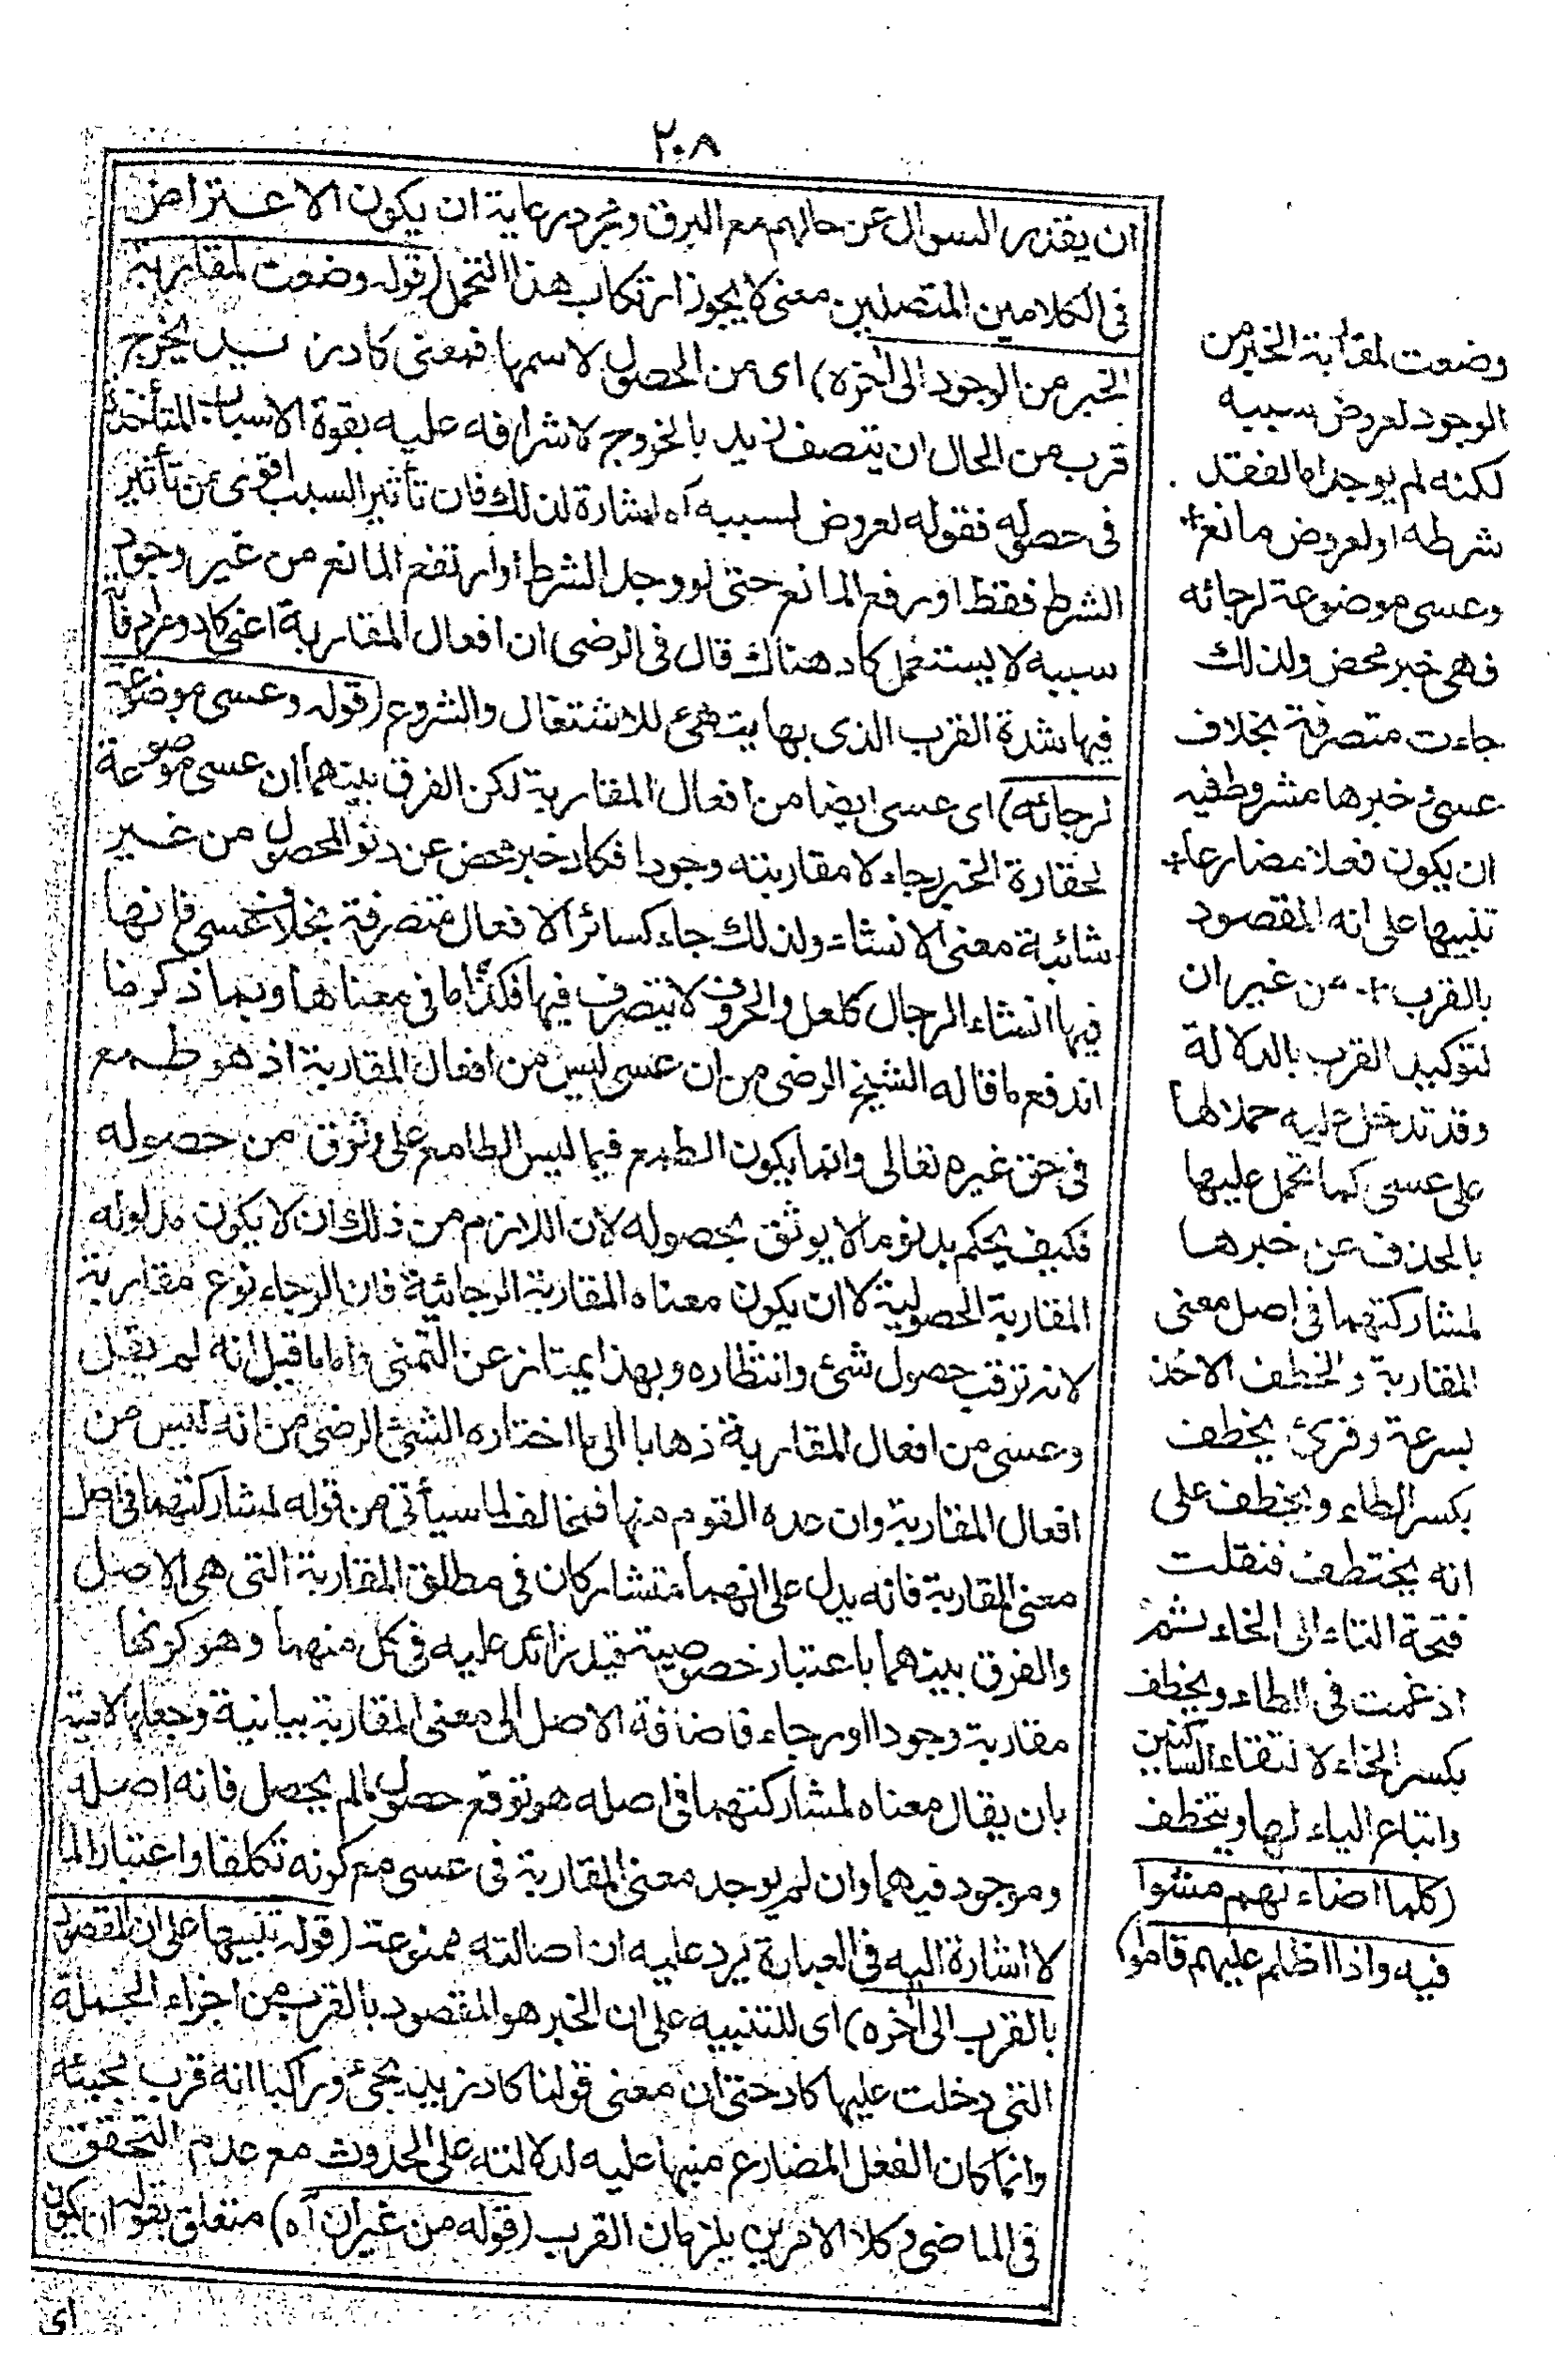 ٢٠٨
ان يقدر السوال عن حالهم مع البرق ومجرد رعاية ان يكون الاعتراض
فى الكلامين المتصلين معنى لا يجوز ارتكاب هذا التحمل (قوله وضعت لمقاربة
الخبر من الوجود الى اٰخره) اى من الحصول لاسمها فمعنى كاد زيد يخرج
قرب من الحال ان يتصف زيد بالخروج لاشرافه عليه بقوة الاسباب المتأخذة
فى حصوله فقوله لعروض لسببه آه اشارة لذلك فان تأثير السبب اقوى من تأثير
الشرط فقط او رفع المانع حتى لو وجد الشرط او ارتفع المانع من غير وجود
سببه لا يستعمل كاد هناك قال فى الرضى ان افعال المقاربة اعنى كاد ومرادفاته
فيها شدة القرب الذى بها يتهئ للاشتغال والشروع (قوله وعسى موضوعة
لرجائه) اى عسى ايضا من افعال المقاربة لكن الفرق بينهما ان عسى موضوعة
لمقاربة الخبر رجاء لا مقاربته وجودا فكاد خبر محض عن دنو الحصول من غير
شائبة معنى الانشاء ولذلك جاء كسائر الافعال متصرفة بخلاف عسى فانها
فيها انشاء الرجال كلعل والحروف لا يتصرف فيها فكذا ما فى معناها وبما ذكرنا
اندفع ما قاله الشيخ الرضى من ان عسى ليس من افعال المقاربة اذ هو طمع
فى حق غيره تعالى وانما يكون الطمع فيما ليس الطامع على وثوق من حصوله
فكيف يحكم بدنو ما لا يوثق بحصوله لان اللازم من ذلك ان لا يكون مدلوله
المقاربة الحصولية لا ان يكون معناه المقاربة الرجائية فان الرجاء نوع مقاربة
لانه ترقب حصول شئ وانتظاره وبهذا يمتاز عن التمنى واما ما قيل انه لم يقل
وعسى من افعال المقاربة ذهابا الى ما اختاره الشئ الرضى من انه ليس من
افعال المقاربة وان عده القوم منها فمخالف لما سيأتى من قوله لمشاركتهما فى اصل
معنى المقاربة فانه يدل على انهما متشاركان فى مطلق المقاربة التى هى الاصل
والفرق بينهما باعتبار خصوصية قيد زائد عليه فى كل منهما وهو كونها
مقاربة وجودا او رجاء فاضافة الاصل الى معنى المقاربة بيانية وجعلها لامية
بان يقال معناه لمشاركتهما فى اصله هو توقع حصول ما لم يحصل فانه اصله
وموجود فيهما وان لم يوجد معنى المقاربة فى عسى مع كونه تكلفا واعتبارا لما
لا اشارة اليه فى العبارة يرد عليه ان اصالته ممنوعة (قوله تنبيها على ان المقصود
بالقرب الى اٰخره) اى للتنبيه على ان الخبر هو المقصود بالقرب من اجزاء الجملة
التى دخلت عليها كاد حتى ان معنى قولنا كاد زيد يجئ وراكبا انه قرب مجيئه
وانما كان الفعل المضارع منبها عليه لدلالته على الحدوث مع عدم التحقق
فى الماضى وكلا الامرين يلزمان القرب (قوله من غير ان آه) متعلق بقوله ان يكون
اى
وضعت لمقاربة الخبر من
الوجود لعروض سببه
لكنه لم يوجد اما لفقد
شرطه او لعروض مانع
وعسى موضوعة لرجائه
فهى خبر محض ولذلك
جاءت متصرفة بخلاف
عسى وخبرها مشروط فيه
ان يكون فعلا مضارعا
تنبيها على انه المقصود
بالقرب من غير ان
لتوكيد القرب بالدلالة
وقد تدخل عليه حملا لها
على عسى كما تحمل عليها
بالحذف عن خبرها
لمشاركتهما فى اصل معنى
المقاربة والخطف الاخذ
بسرعة وقرئ يخطف
بكسر الطاء ويخطف على
انه يختطف فنقلت
فتحة التاء الى الخاء ثم
ادغمت فى الطاء ويخطف
بكسر الخاء لالتقاء الساكنين
واتباع الياء لها ويتخطف
(كلما اضاء لهم مشوا
فيه واذا اظلم عليهم قاموا)